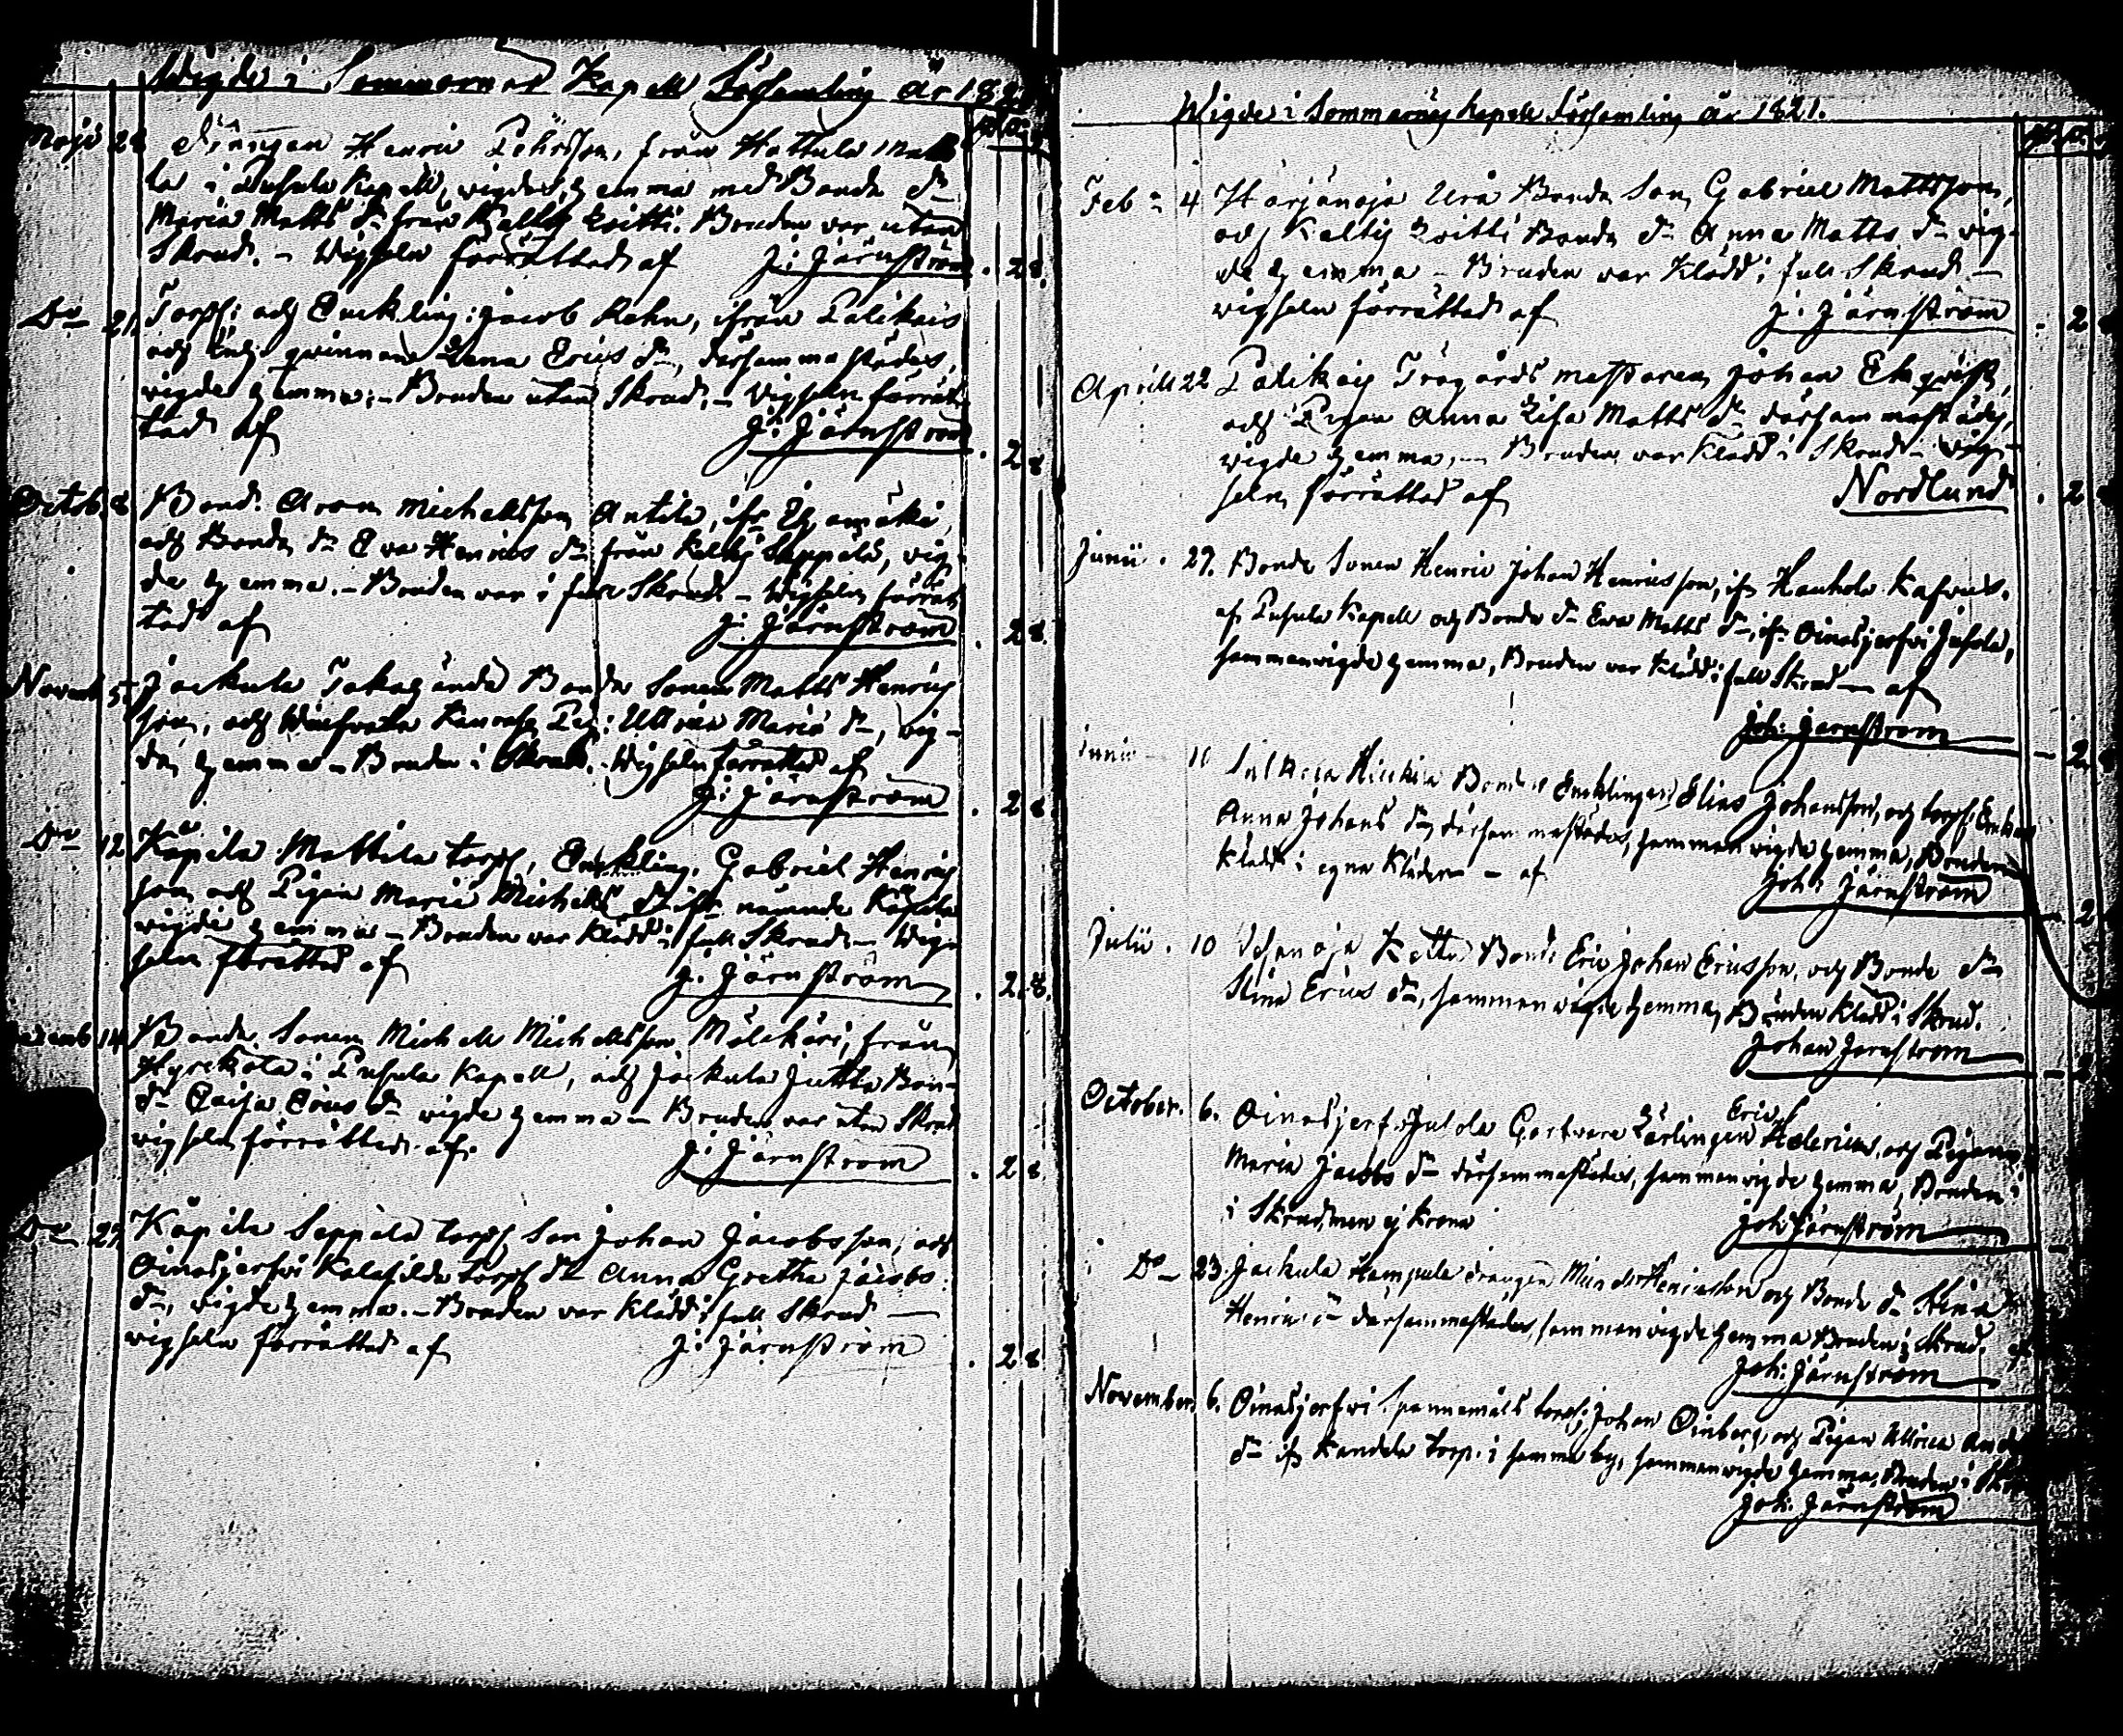 Wigde i Sommarnäs Kapell Församling År 182
Maji 28 Drängen Henric Pehrsson, från Hattula
la i Pusula Kapell, wigder hemma med Bonde Dr
Maria Matts Dr från Kaltis Koitti. Bruden var utan
Skrud. – Wigseln förrättad af J: Järnström . 2 8.
Do 21. Torp: och Enckling: Jacob Rehn, ifrån Palikais
och Enk: qwinnan Lena Erics Dr, därsammastädes,
wigde hemma. – Bruden utan Skrud. – Wigseln förrät
tad af J: Järnström . 2 8
Octob. 8 Bond. Aron Michellsson Antila, ifr.
och Bonde Dr Eva Henrics Dr från Kaltis Seppälä, wig-
de hemma. – Bruden var i full Skrud. – Wigseln förrät
tad af J: Järnström . 2 8.
Novemb 5. Jackula Takahändä Bonde Sonen Matts Henrics
son, och Pig: Ullrica Maria Dr, wig-
de hemma – Bruden i Skrud. Wigseln förrättad af
J: Järnström . 2 8
Do 12 Käpilä Mattila torp, Enckling, Gabriel Henrics
son och Pigan Maria Michells Dr ifr nämnde Käpilä
wigde hemma – Bruden var Klädd i full Skrud – Wig-
seln förrättad af J: Järnström . 2. 8.
14 Bonde Sonen Michell Michellsson Mölckäri, från
Hyrckölä i Pusula Kapell, och Jackula Juttila Bon-
Dr Caisa Erics Dr wigde hemma – Bruden var utan Skrud
wigseln förrättad af J: Järnström . 2 8
Do 27 Käpilä Seppälä torp Son Johan Jacobsson, och
Oinasjerfwi Kalasildä torp Dr Anna Gretha Jacobs
Dr, wigde hemma. – Bruden var Klädd i full Skrud –
wigseln förrättad af J: Järnström . 2 8
Wigde i Sommarnäs Kapell Församling År 1821.
Feb: 4 Härjänoja Ura Bonde Son Gabriel Mattsson,
och Kaltis Koitti Bonde Dr Anna Matts Dr wig-
de hemma – Bruden var Klädd i full Skrud –
wigseln förrättad af J: Järnström . 2
Aprill 22 Palikais Trägårds mästaren Johan Ekqvist,
och Pigan Anna Lisa Matts Dr därsammastädes,
wigde hemma, – Bruden war Klädd i Skrud – Wig-
seln förrättad af Nordlund . 2
Junii . 27. Bonde Sonen Henric Johan Henricsson, ifr Hauhola
af Pusula Kapell och Bonde Dr Eva Matts Dr, ifr Oinasjerfwi Juhola,
sammanwigde hemma, Bruden war Klädd i full Skrud – af
Joh: Jernström – 2
Junii 10 Bonde Encklingen Elias Johansson, och torp: Enkan
Anna Johans Dr därsammastädes, sammanwigde hemma, Bruden
klädd i egna Kläder – af Joh: Järnström 2
Julii . 10 Bond: Eric Johan Ericsson, och Bonde Dr
Stina Erics Dr, sammanwigde hemma, Bruden Klädd i Skrud.
Johan Jernström – 2
October. 6. Oinasjerf. Juhola Garfware Lärlingen Eric Helenius, och Pigan
Maria Jacobs Dr därsammastädes, sammanwigde hemma, Bruden
i Skrud, men ej Krona Joh: Järnström
Do 23. Jackula Hampula drängen Henricsson och Bonde Dr Stina
Henrics Dr därsammastädes, sammanwigde hemma Bruden i Skrud. af
Joh: Järnström
November 6. Oinasjerfwi Spannmåls torp: Johan Oinberg, och Pigan Ullrica
Dr ifr Kandela torp. i samma by, sammanwigde hemma, Bruden i
Joh: Järnström